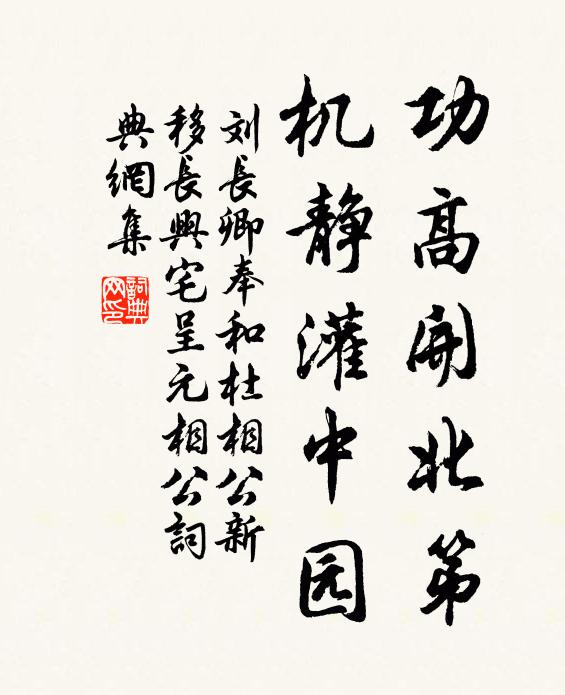 功高開北第
机静灌中园
刘長卿奉和杜相公新
移長興宅呈元相公詞
典網集
詞典网印